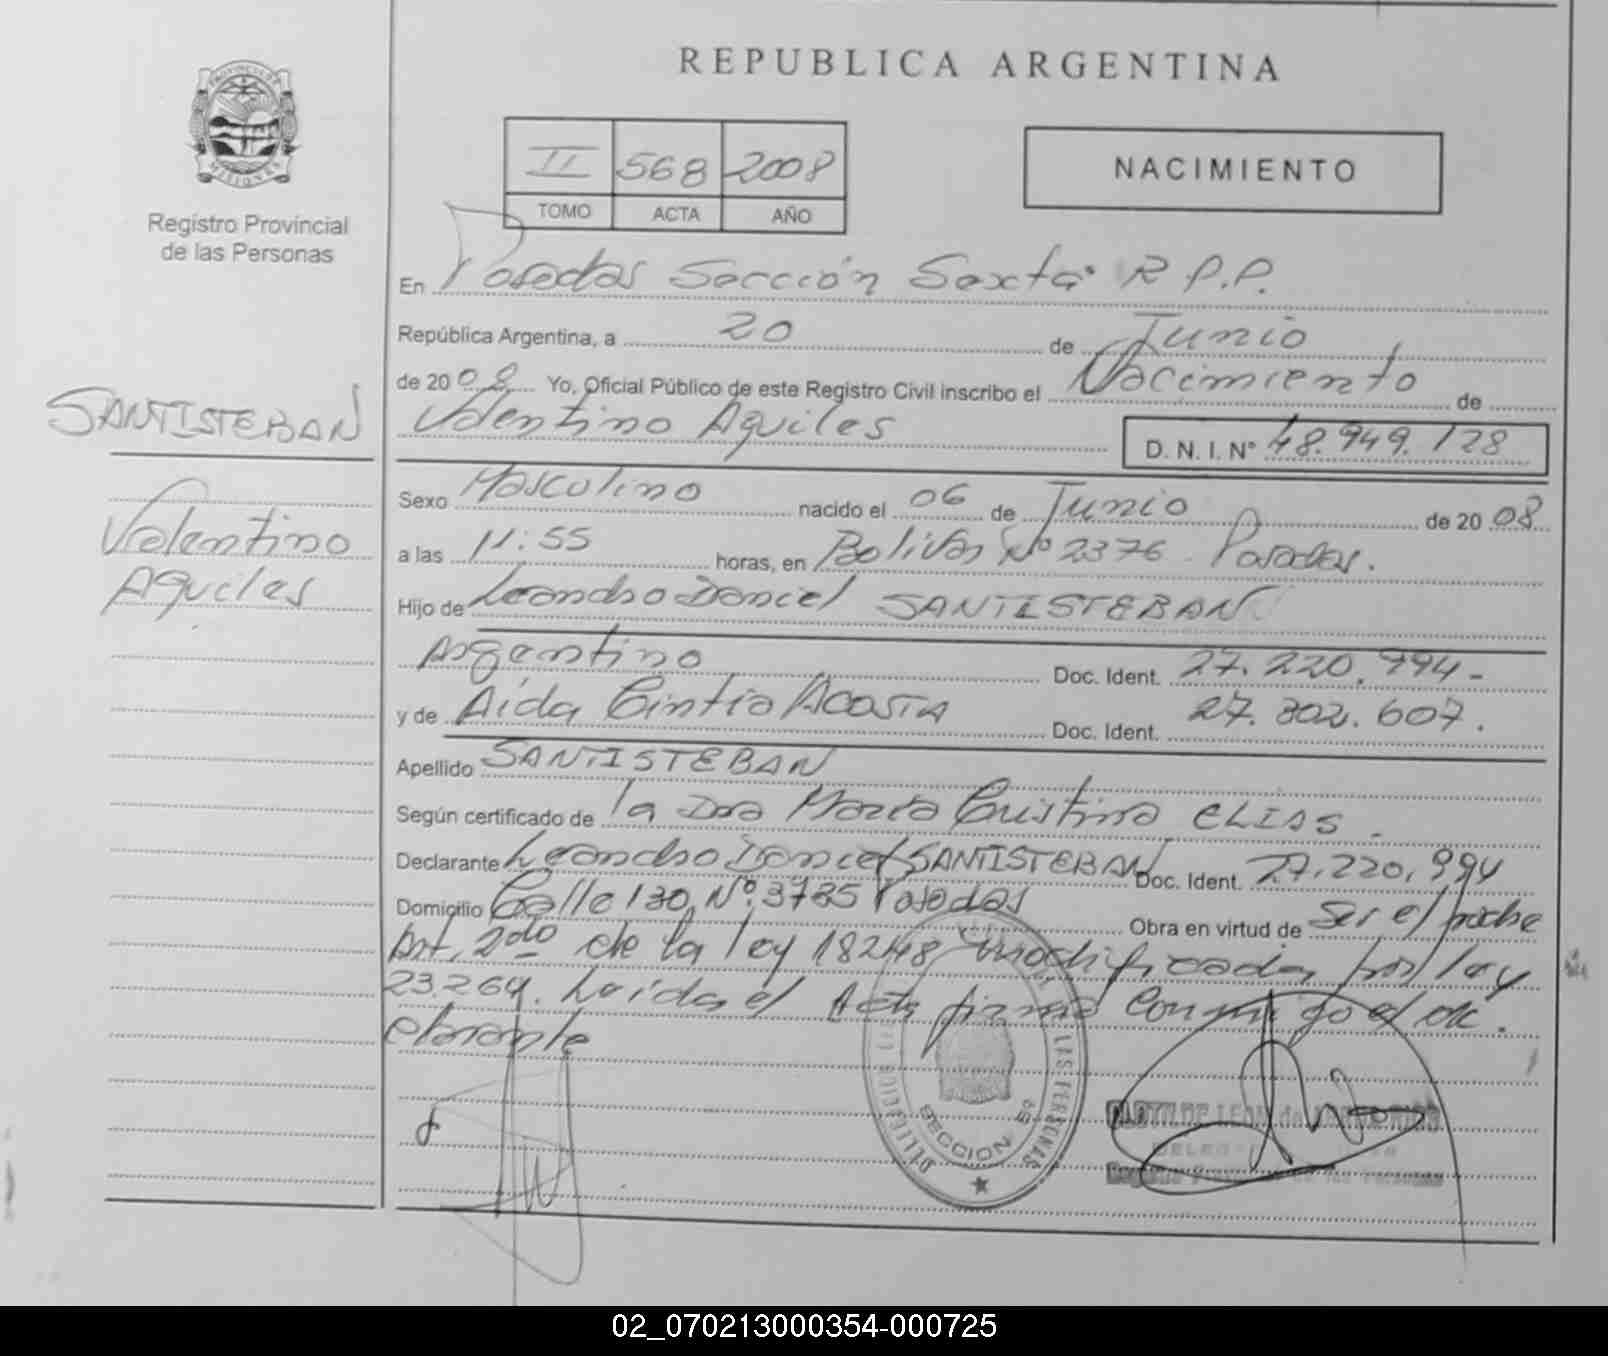 PROVINCIA DE
MISIONES
Registro Provincial
de las Personas
SANTISTEBAN
Valentino
Aquiles
REPUBLICA ARGENTINA
II 568 2008
TOMO ACTA AÑO
NACIMIENTO
En Posadas Sección Sexta R.P.P.
República Argentina, a 20 de Junio
de 2008 Yo, Oficial Público de este Registro Civil inscribo el Nacimiento de
Valentino Aquiles D. N. I. Nº 48.949.128
Sexo Masculino nacido el 06 de Junio de 2008
a las 11:55 horas, en Bolivar Nº 2376 Posadas.
Hijo de Leandro Daniel SANTISTEBAN
Argentino Doc. Ident. 27.220.994-
y de Aida Cintia ACOSTA Doc. Ident. 27.802.607.
Apellido SANTISTEBAN
Según certificado de la Dra Maria Cristina ELIAS.
Declarante Leandro Daniel SANTISTEBAN Doc. Ident. 27.220.994
Domicilio Calle 130 Nº 3735 Posadas Obra en virtud de Ser el padre
Art. 2do de la ley 18248 modificada por ley
23264. Leida el Acta firma conmigo el de
clarante
LAS PERSONAS
SECCION 6ª
02_070213000354-000725